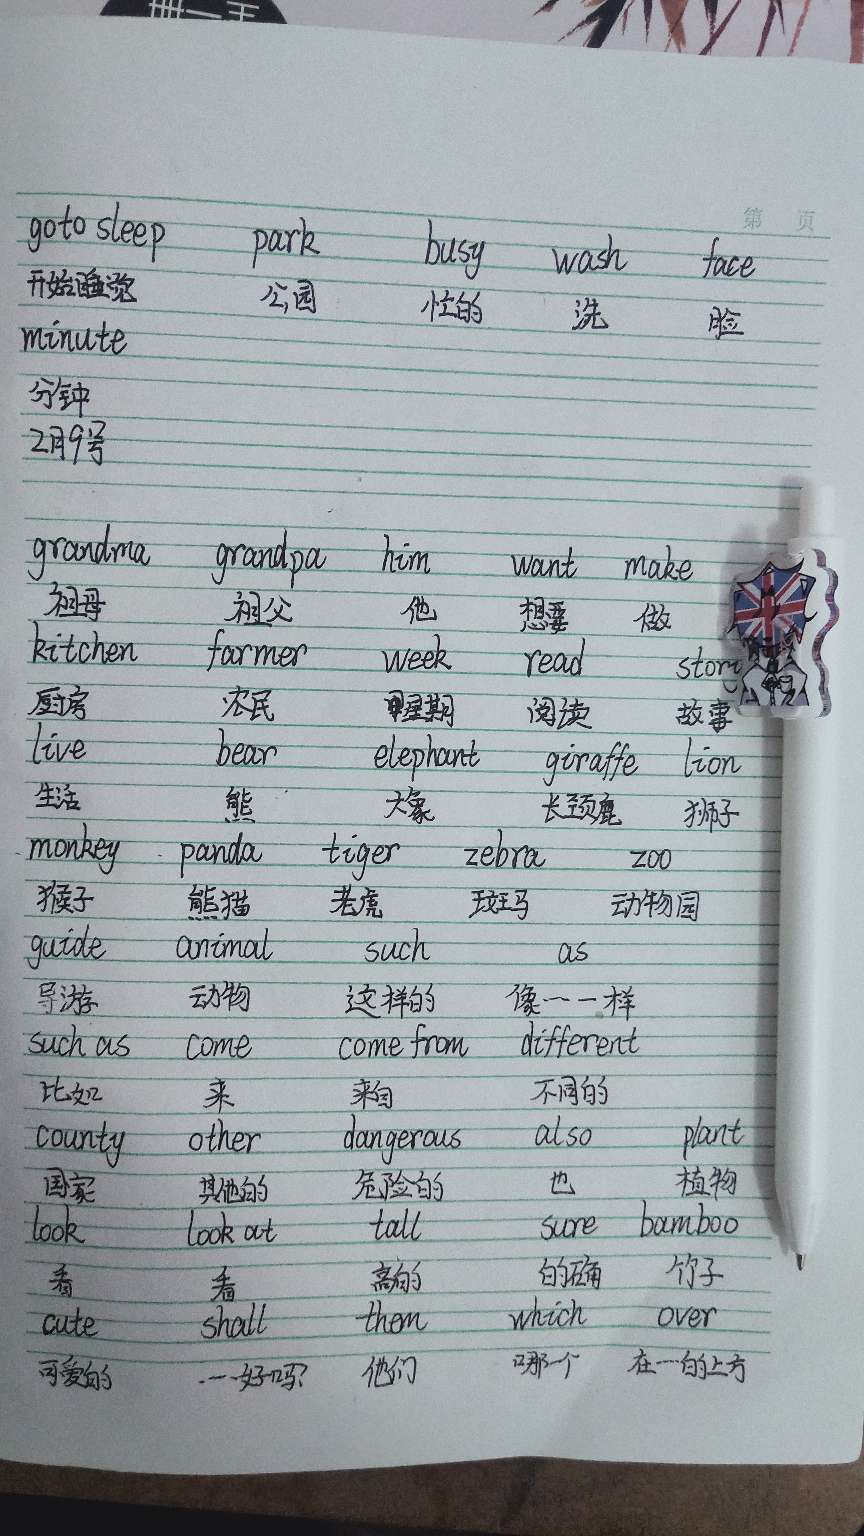 第 页
go to sleep park busy wash face
开始睡觉 公园 忙的 洗 脸
minute
分钟
2月9号
grandma grandpa him want make
祖母 祖父 他 想要 做
kitchen farmer week read story
厨房 农民 星期 阅读 故事
live bear elephant giraffe lion
生活 熊 大象 长颈鹿 狮子
monkey panda tiger zebra zoo
猴子 熊猫 老虎 斑马 动物园
guide animal such as
导游 动物 这样的 像……样
such as come come from different
比如 来 来自 不同的
county other dangerous also plant
国家 其他的 危险的 也 植物
look look at tall sure bamboo
看 看 高的 的确 竹子
cute shall them which over
可爱的 ……好吗? 他们 哪一个 在……的上方